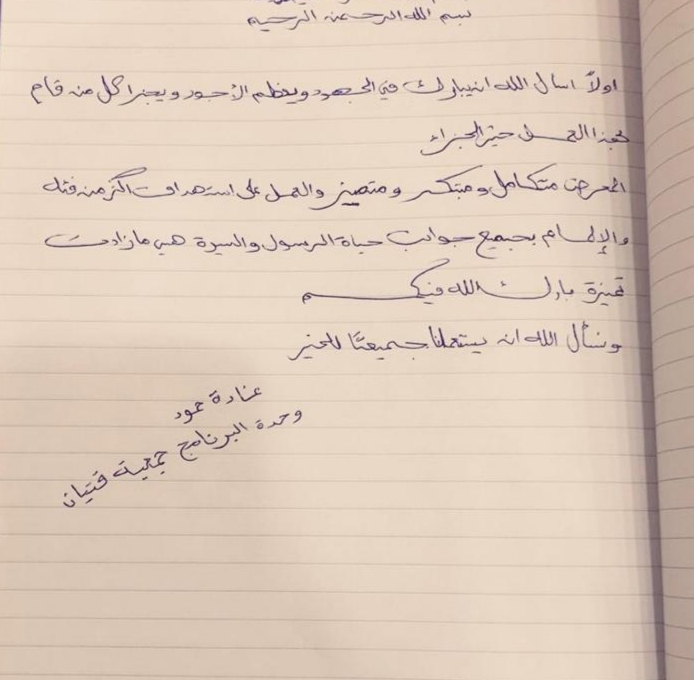 بسم الله الرحمن الرحيم
اولاً اسال الله ان يبارك في الجهود ويعظم الأجور ويجزا كل من قام
بهذا العمل خير الجزاء
المعرض متكامل ومبتكر ومتميز والعمل على استهداف اكثر من فئه
والإلمام بجميع جوانب حياة الرسول والسيرة هي ما زادت
تميزة بارك الله فيكم
ونسأل الله ان يستعملنا جميعًا للخير
حمود
وحدة البرنامج جمعية فتيان